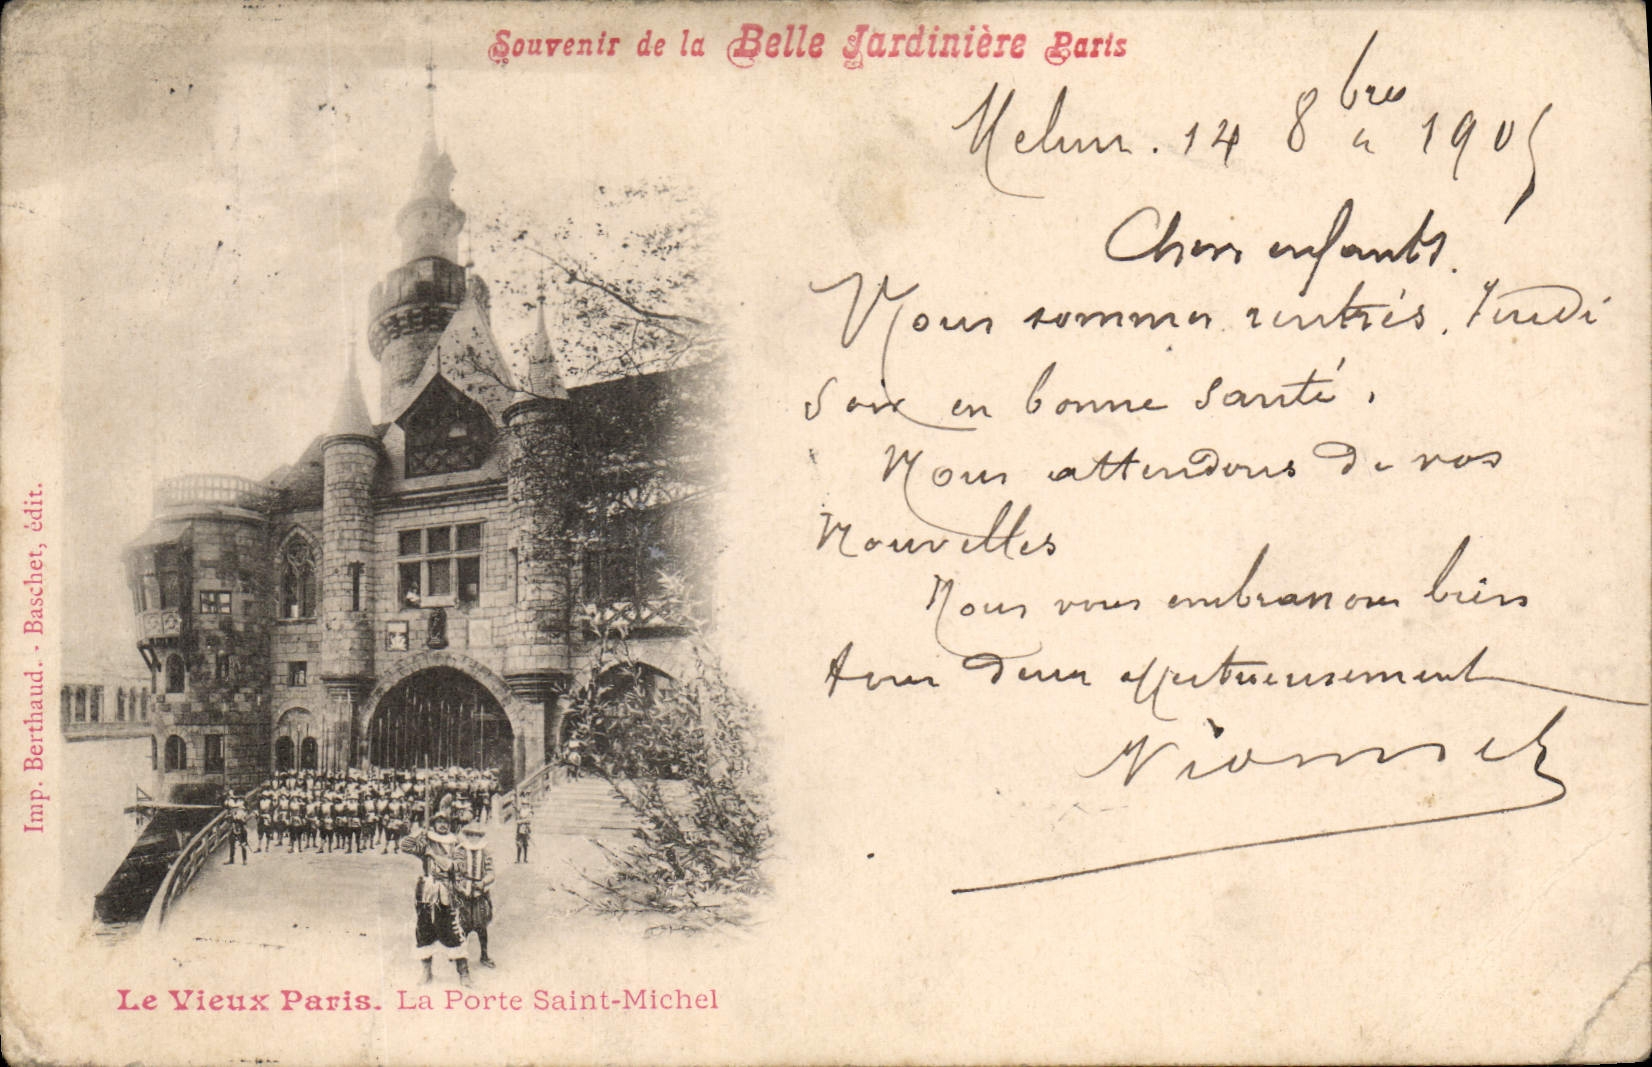 Souvenir de la Belle Jardinière Paris
Melun. 14 8bre 1905
Chers enfants.
Nous sommes rentrés. Jeudi
soir en bonne santé.
Nous attendons de vos
Nouvelles
Nous vous embrassons bien
tous deux affectueusement
Imp. Berthaud. - Baschet, édit.
Le Vieux Paris. La Porte Saint-Michel